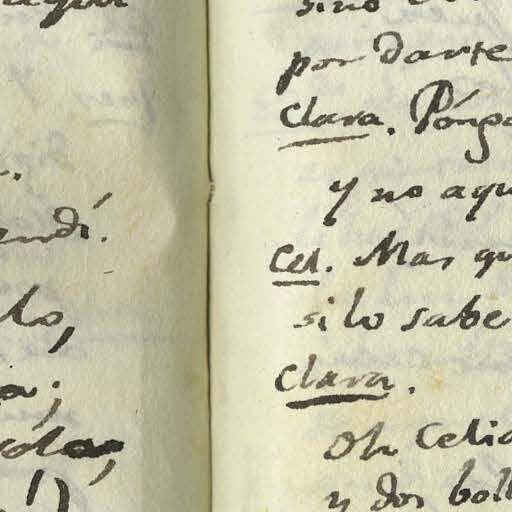 endí.
lo,
a;
!)
sino
por darte
Clara. Pónga
y no aqu
Cel. Mas qu
si lo sabe
Clara.
Oh Celia
y dos boll